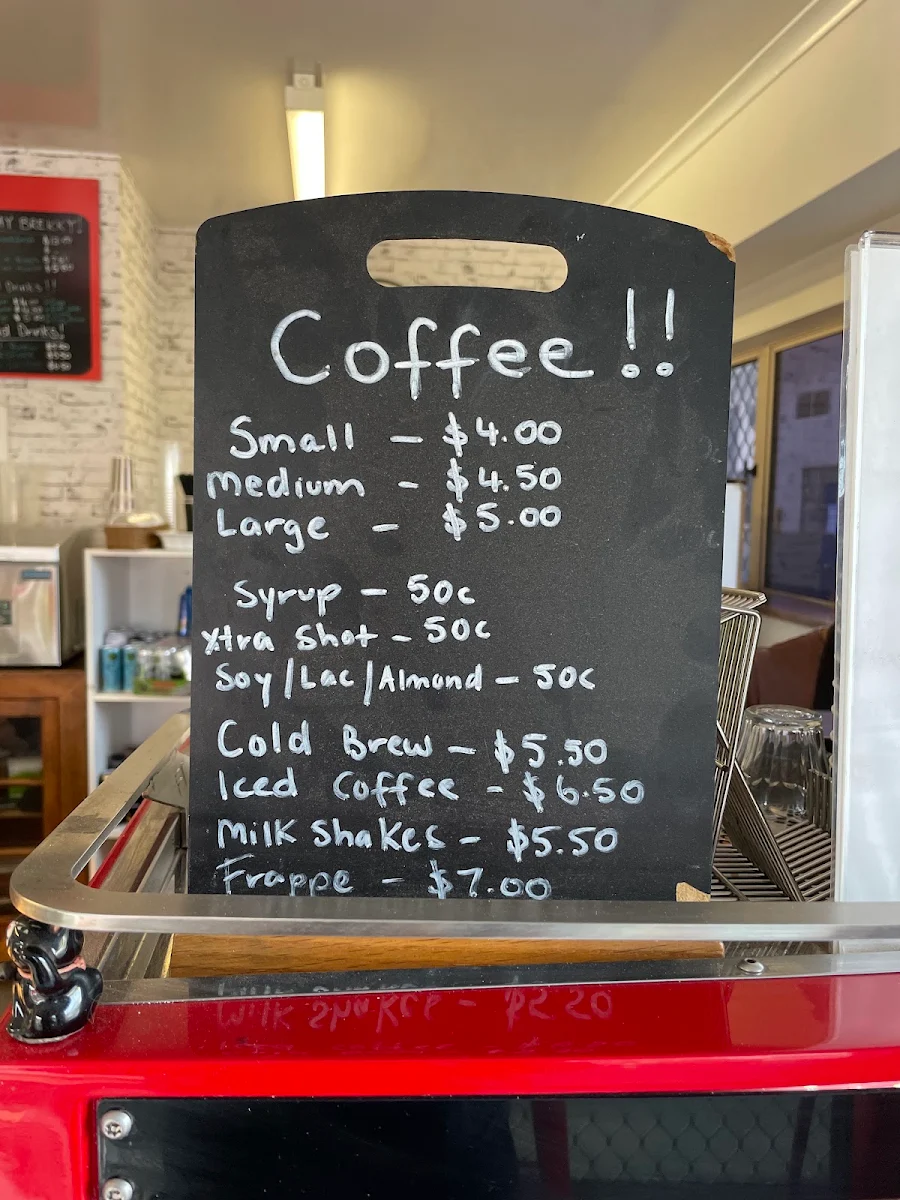 Coffee !!
Small - $4.00
Medium - $4.50
Large - $5.00
Syrup - 50c
Xtra Shot - 50c
Soy/Lac/Almond - 50c
Cold Brew - $5.50
Iced Coffee - $6.50
Milk Shakes - $5.50
Frappe - $7.00